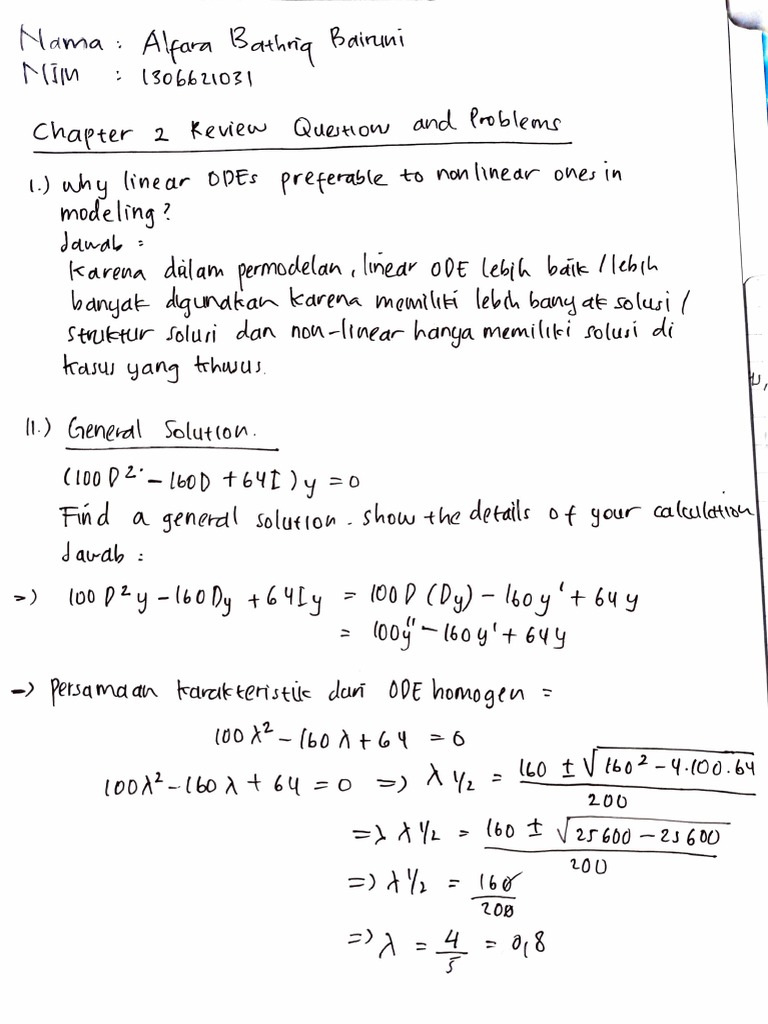 Nama : Alfara Bathriq Bairuni
NIM : 1306621031
Chapter 2 Review Question and Problems
1.) Why linear ODEs preferable to nonlinear ones in
modeling?
Jawab :
Karena dalam permodelan, linear ODE lebih baik / lebih
banyak digunakan karena memiliki lebih banyak solusi /
struktur solusi dan non-linear hanya memiliki solusi di
kasus yang khusus.
11.) General Solution.
(100 D² - 160D + 64I) y = 0
Find a general solution. show the details of your calculation
Jawab :
=> 100 D²y - 160Dy + 64Iy = 100D (Dy) - 160y' + 64y
= 100y'' - 160y' + 64y
-> Persamaan karakteristik dari ODE homogen =
100λ² - 160λ + 64 = 0
100λ² - 160λ + 64 = 0 => λ 1/2 = (160 ± √(160² - 4.100.64))/200
=> λ 1/2 = (160 ± √(25600 - 25600))/200
=> λ 1/2 = 160/200
=> λ = 4/5 = 0,8